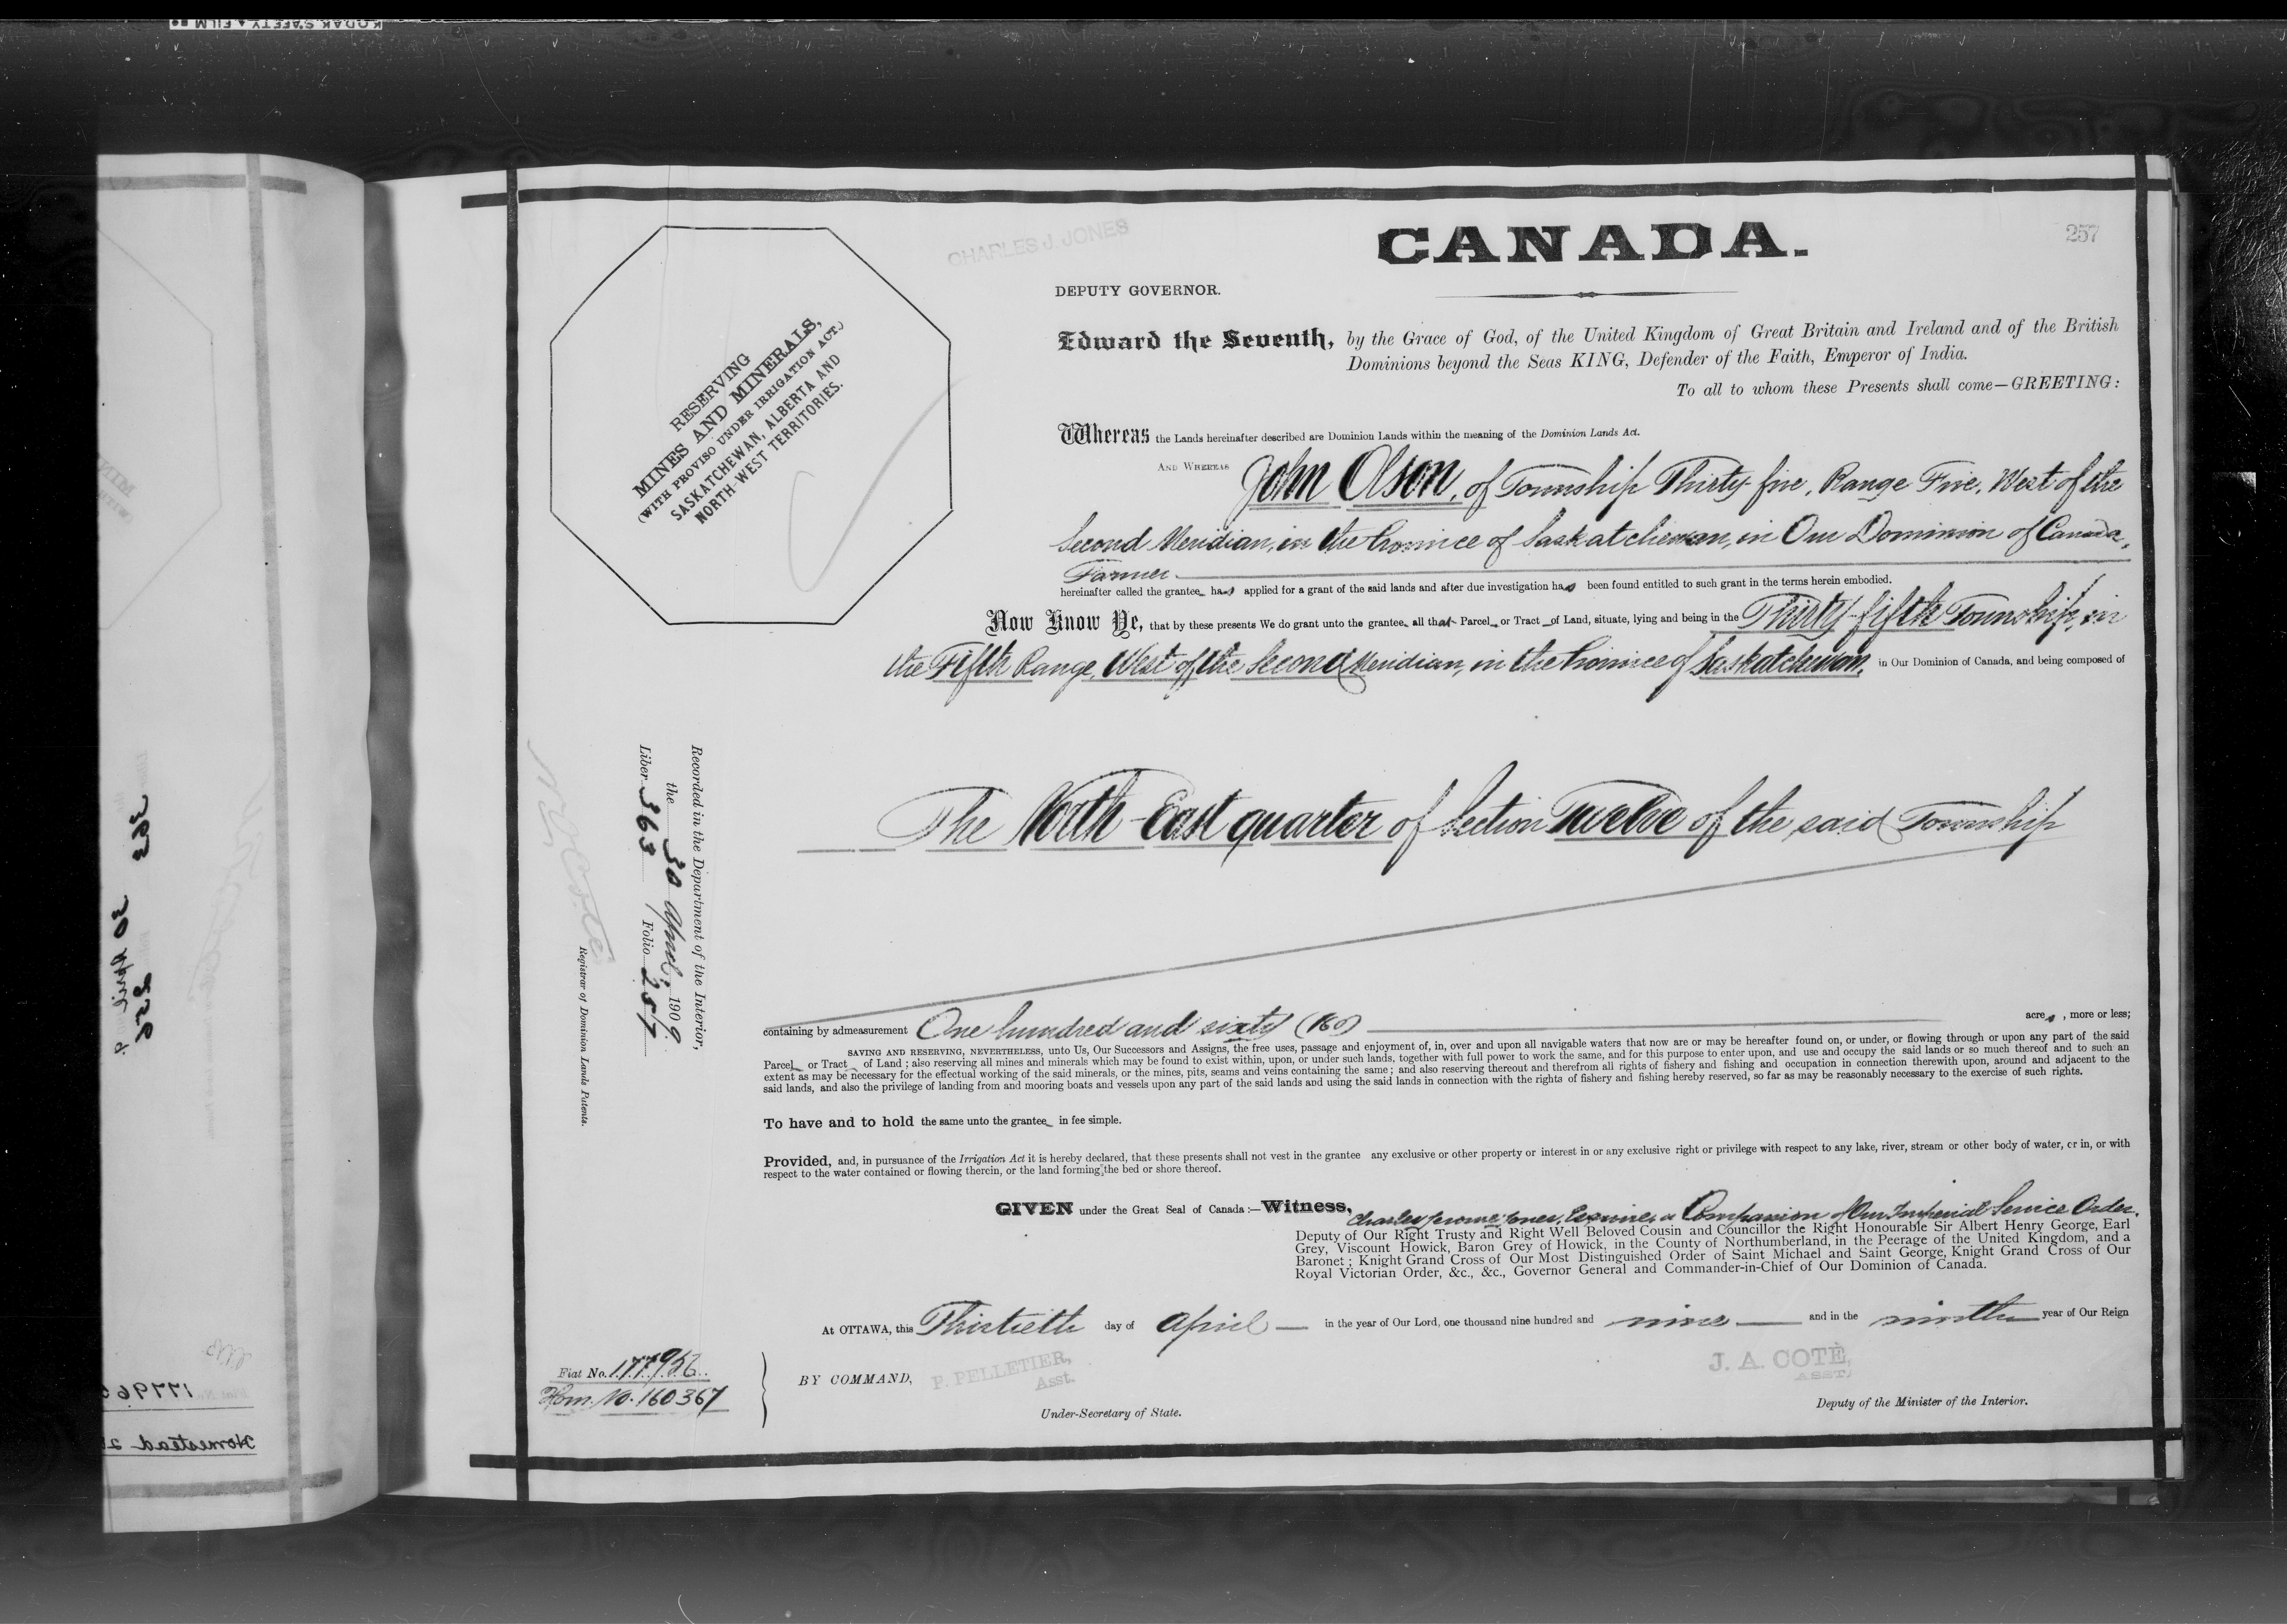 KODAK SAFETY FILM
CHARLES J. JONES
CANADA.
257
DEPUTY GOVERNOR.
Edward the Seventh, by the Grace of God, of the United Kingdom of Great Britain and Ireland and of the British
Dominions beyond the Seas KING, Defender of the Faith, Emperor of India.
To all to whom these Presents shall come—GREETING:
RESERVING
MINES AND MINERALS,
(WITH PROVISO UNDER IRRIGATION ACT.)
SASKATCHEWAN, ALBERTA AND
NORTH-WEST TERRITORIES.
Whereas the Lands hereinafter described are Dominion Lands within the meaning of the Dominion Lands Act.
AND WHEREAS John Olson, of Township Thirty-five, Range Five, West of the
Second Meridian, in the Province of Saskatchewan, in Our Dominion of Canada,
Farmer
hereinafter called the grantee has applied for a grant of the said lands and after due investigation has been found entitled to such grant in the terms herein embodied.
Now Know Ye, that by these presents We do grant unto the grantee all that Parcel or Tract of Land, situate, lying and being in the Thirty-fifth Township, in
the Fifth Range, West of the Second Meridian, in the Province of Saskatchewan, in Our Dominion of Canada, and being composed of
The North-East quarter of Section Twelve of the said Township
Recorded in the Department of the Interior,
the 30 April, 1909
Liber 363 Folio 257
N.O. Coté
Registrar of Dominion Lands Patents.
containing by admeasurement One hundred and sixty (160) acres, more or less;
SAVING AND RESERVING, NEVERTHELESS, unto Us, Our Successors and Assigns, the free uses, passage and enjoyment of, in, over and upon all navigable waters that now are or may be hereafter found on, or under, or flowing through or upon any part of the said
Parcel or Tract of Land; also reserving all mines and minerals which may be found to exist within, upon, or under such lands, together with full power to work the same, and for this purpose to enter upon, and use and occupy the said lands or so much thereof and to such an
extent as may be necessary for the effectual working of the said minerals, or the mines, pits, seams and veins containing the same; and also reserving thereout and therefrom all rights of fishery and fishing and occupation in connection therewith upon, around and adjacent to the
said lands, and also the privilege of landing from and mooring boats and vessels upon any part of the said lands and using the said lands in connection with the rights of fishery and fishing hereby reserved, so far as may be reasonably necessary to the exercise of such rights.
To have and to hold the same unto the grantee in fee simple.
Provided, and, in pursuance of the Irrigation Act it is hereby declared, that these presents shall not vest in the grantee any exclusive or other property or interest in or any exclusive right or privilege with respect to any lake, river, stream or other body of water, or in, or with
respect to the water contained or flowing therein, or the land forming the bed or shore thereof.
GIVEN under the Great Seal of Canada:—Witness, Charles Jerome Jones, Esquire, a Companion of Our Imperial Service Order,
Deputy of Our Right Trusty and Right Well Beloved Cousin and Councillor the Right Honourable Sir Albert Henry George, Earl
Grey, Viscount Howick, Baron Grey of Howick, in the County of Northumberland, in the Peerage of the United Kingdom, and a
Baronet; Knight Grand Cross of Our Most Distinguished Order of Saint Michael and Saint George, Knight Grand Cross of Our
Royal Victorian Order, &c., &c., Governor General and Commander-in-Chief of Our Dominion of Canada.
At OTTAWA, this Thirtieth day of April in the year of Our Lord, one thousand nine hundred and nine and in the ninth year of Our Reign
Fiat No. 177956
Hom. No. 160367
BY COMMAND, P. PELLETIER,
Asst.
Under-Secretary of State.
J. A. COTÉ,
ASST.
Deputy of the Minister of the Interior.
363
30 April
256
Homestead